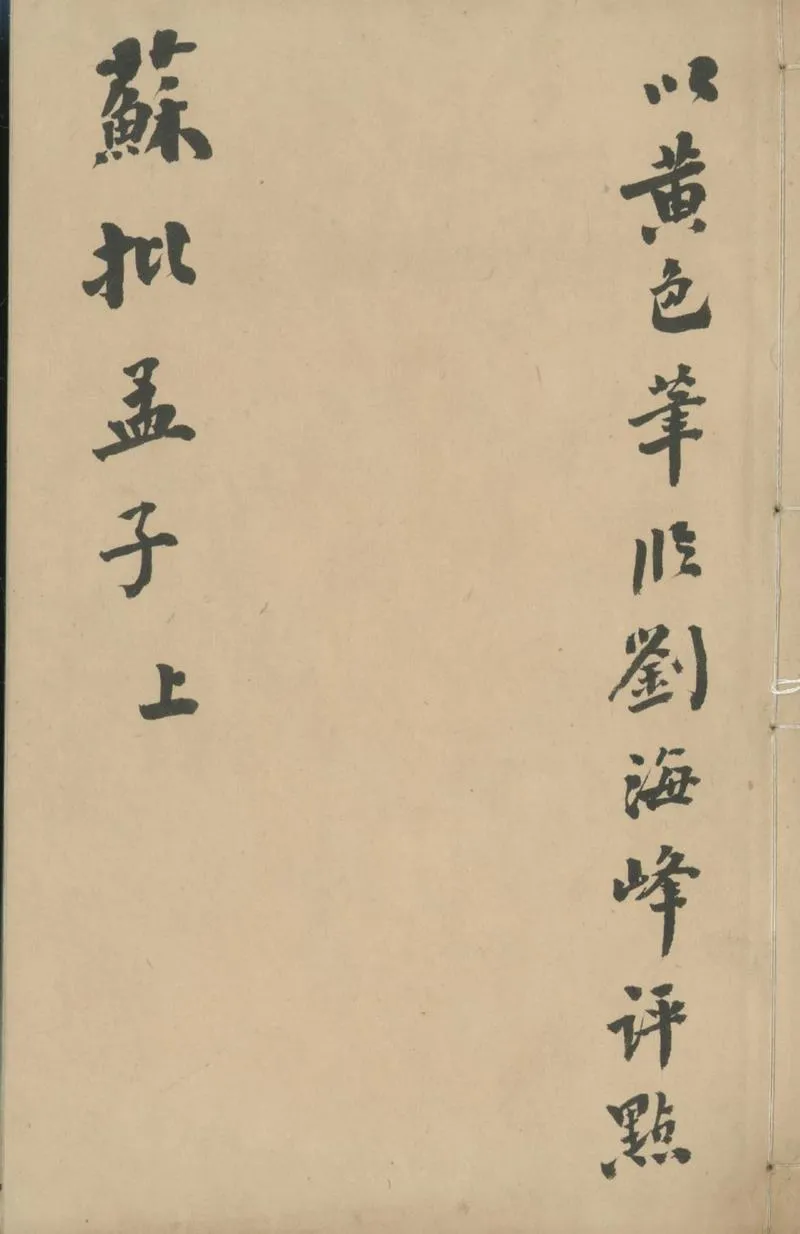 以黄色筆临劉海峰评點
蘇批孟子 上